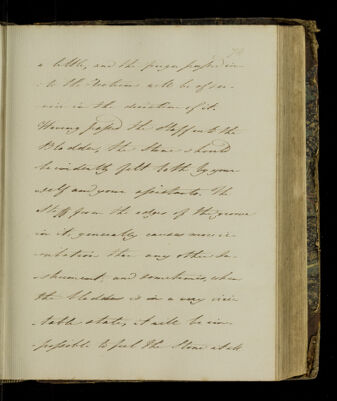 a little, and the finger passed in-
to the Rectum will be of ser-
vice in the direction of it.
Having passed the Staff into the
Bladder, the Stone should
be evidently felt both by your
self and your assistants. The
Staff from the edges of the groove
in it generally causes more ir-
ritation than any other In-
-strument, and sometimes, when
the bladder is in a very irri-
-table state, it will be im-
-possible to feel the Stone at all